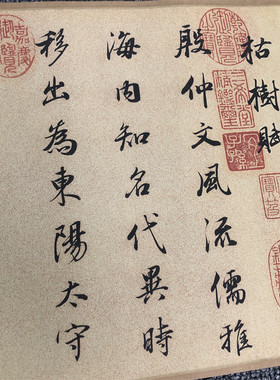 枯樹賦
殷仲文風流儒雅
海内知名代異時
移出為東陽太守